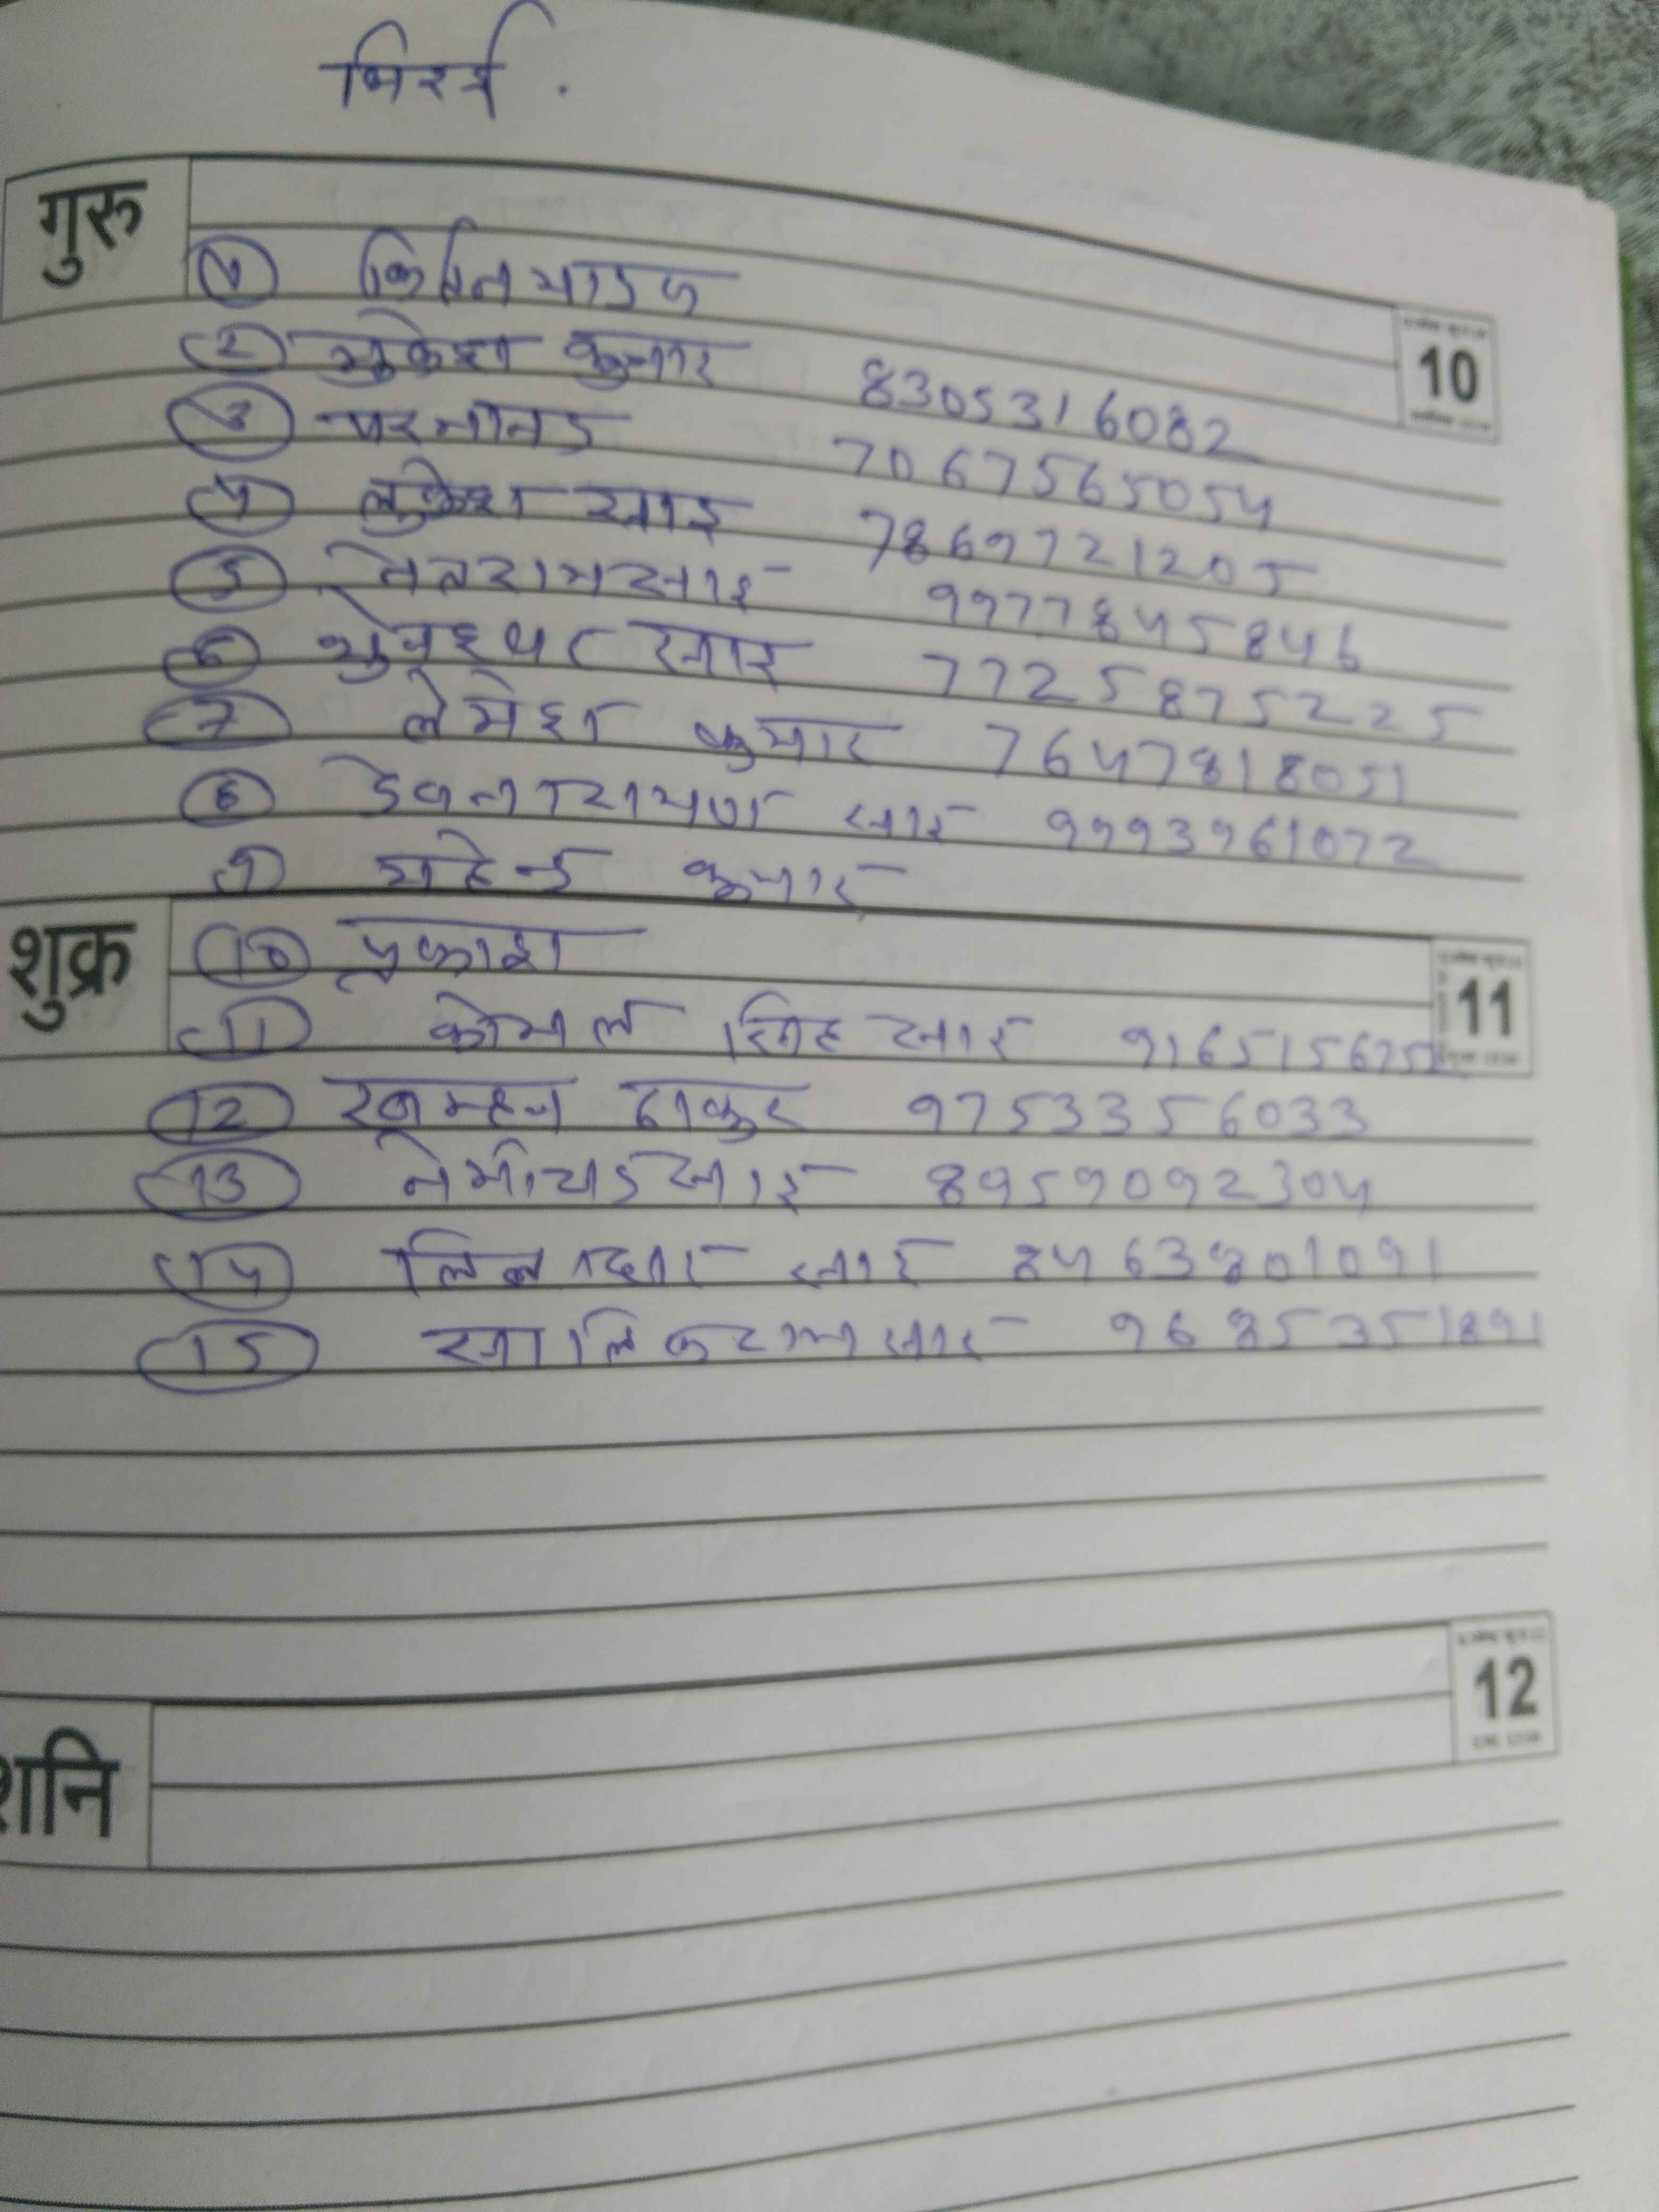 भिरई .
गुरु
① किर्तन यादव
10
② मुकेश कुमार 8305316082
③ परमानन्द 7067565054
④ लुकेश साहू 7869721205
⑤ नेतराम साहू 9977845846
⑥ भुनेश्वर साहू 7725875225
⑦ लेमेश कुमार 7647818051
⑧ देवनारायण साहू 9993961072
⑨ महेन्द्र कुमार
शुक्र
⑩ प्रकाश
11
⑪ कोमल सिंह साहू 9165156752
⑫ ठाकुर 9753356033
⑬ साहू 8959092304
⑭ साहू 8463801091
⑮ सालिकराम साहू 9685351891
12
शनि